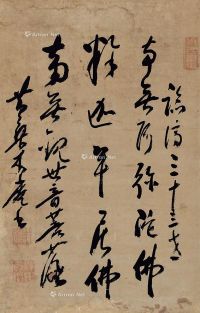 臨濟三十三世
南無阿彌陀佛
釋迦牟尼佛
南無觀世音菩薩
黃檗木菴書